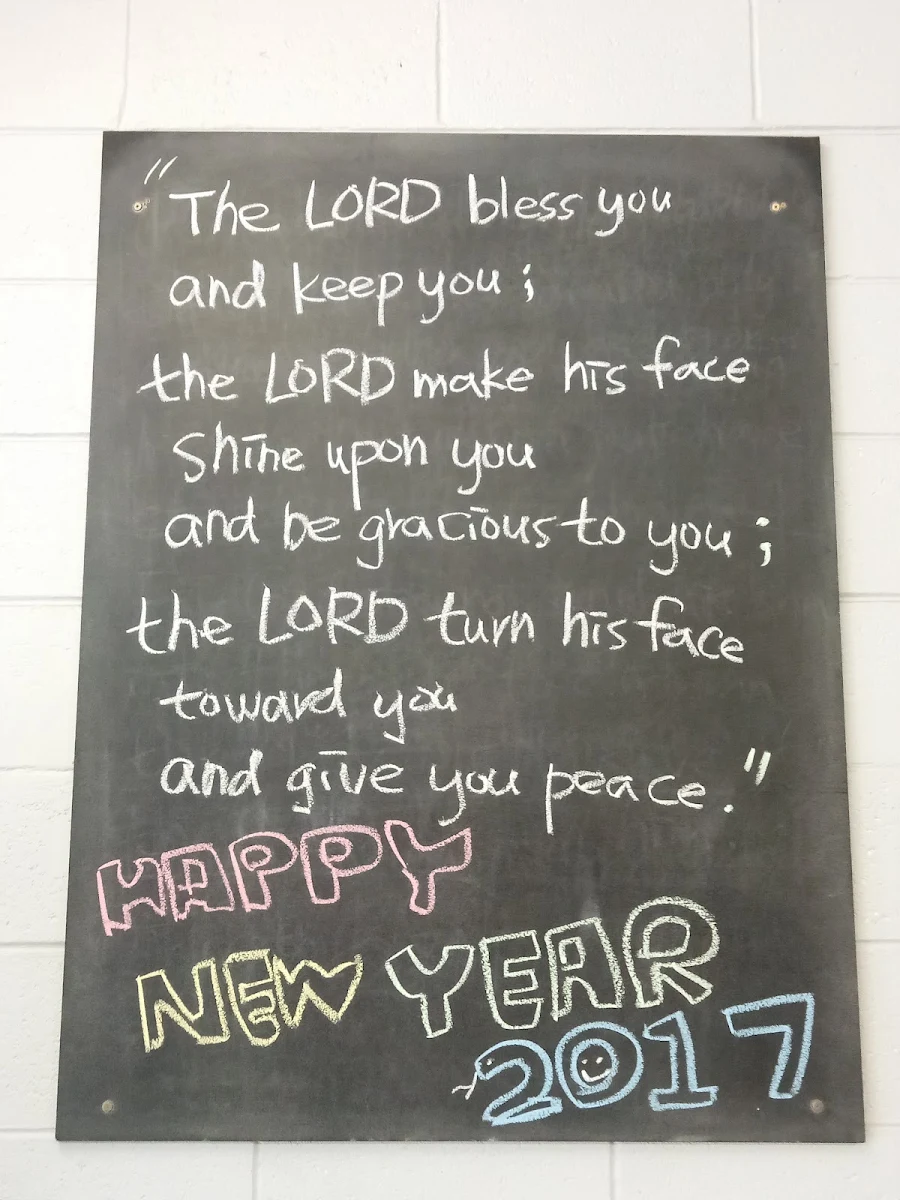 "The LORD bless you
and keep you;
the LORD make his face
shine upon you
and be gracious to you;
the LORD turn his face
toward you
and give you peace."
HAPPY
NEW YEAR
2017